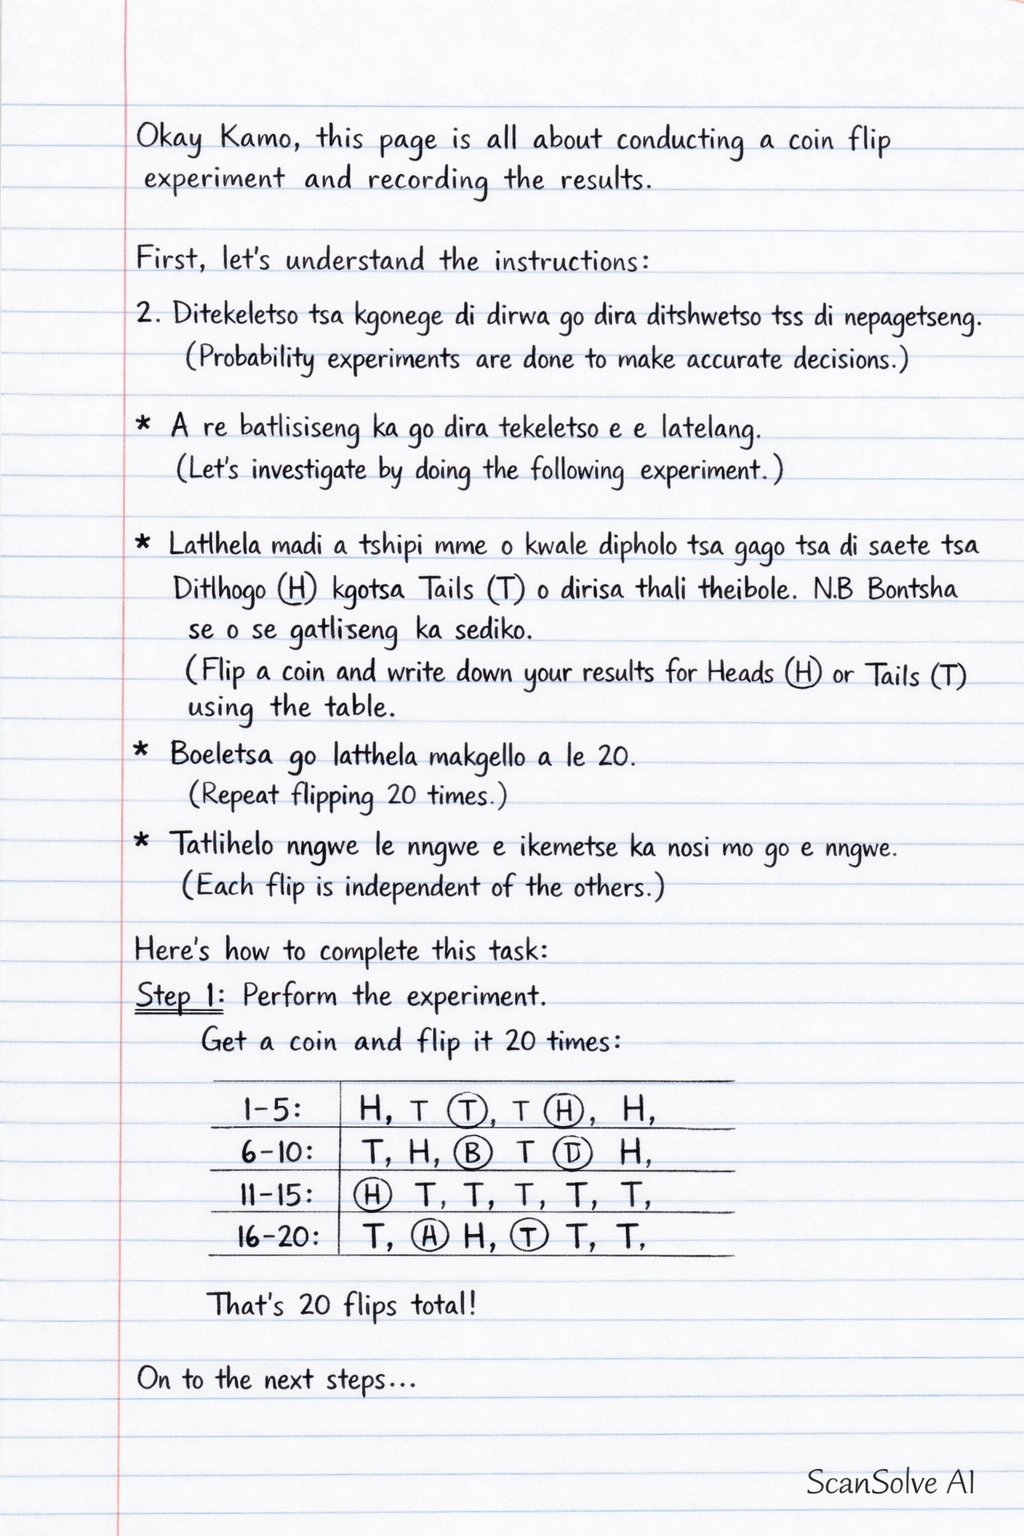 Okay Kamo, this page is all about conducting a coin flip
experiment and recording the results.
First, let's understand the instructions:
2. Ditekeletso tsa kgonege di dirwa go dira ditshwetso tss di nepagetseng.
(Probability experiments are done to make accurate decisions.)
* A re batlisiseng ka go dira tekeletso e e latelang.
(Let's investigate by doing the following experiment.)
* Latlhela madi a tshipi mme o kwale dipholo tsa gago tsa di saete tsa
Ditlhogo (H) kgotsa Tails (T) o dirisa thali theibole. N.B Bontsha
se o se gatliseng ka sediko.
(Flip a coin and write down your results for Heads (H) or Tails (T)
using the table.
* Boeletsa go latthela makgello a le 20.
(Repeat flipping 20 times.)
* Tatlihelo nngwe le nngwe e ikemetse ka nosi mo go e nngwe.
(Each flip is independent of the others.)
Here's how to complete this task:
Step 1: Perform the experiment.
Get a coin and flip it 20 times:
1-5: H, T (T), T (H), H,
6-10: T, H, (B) T (D) H,
11-15: (H) T, T, T, T, T,
16-20: T, (A) H, (T) T, T.
That's 20 flips total!
On to the next steps...
ScanSolve AI